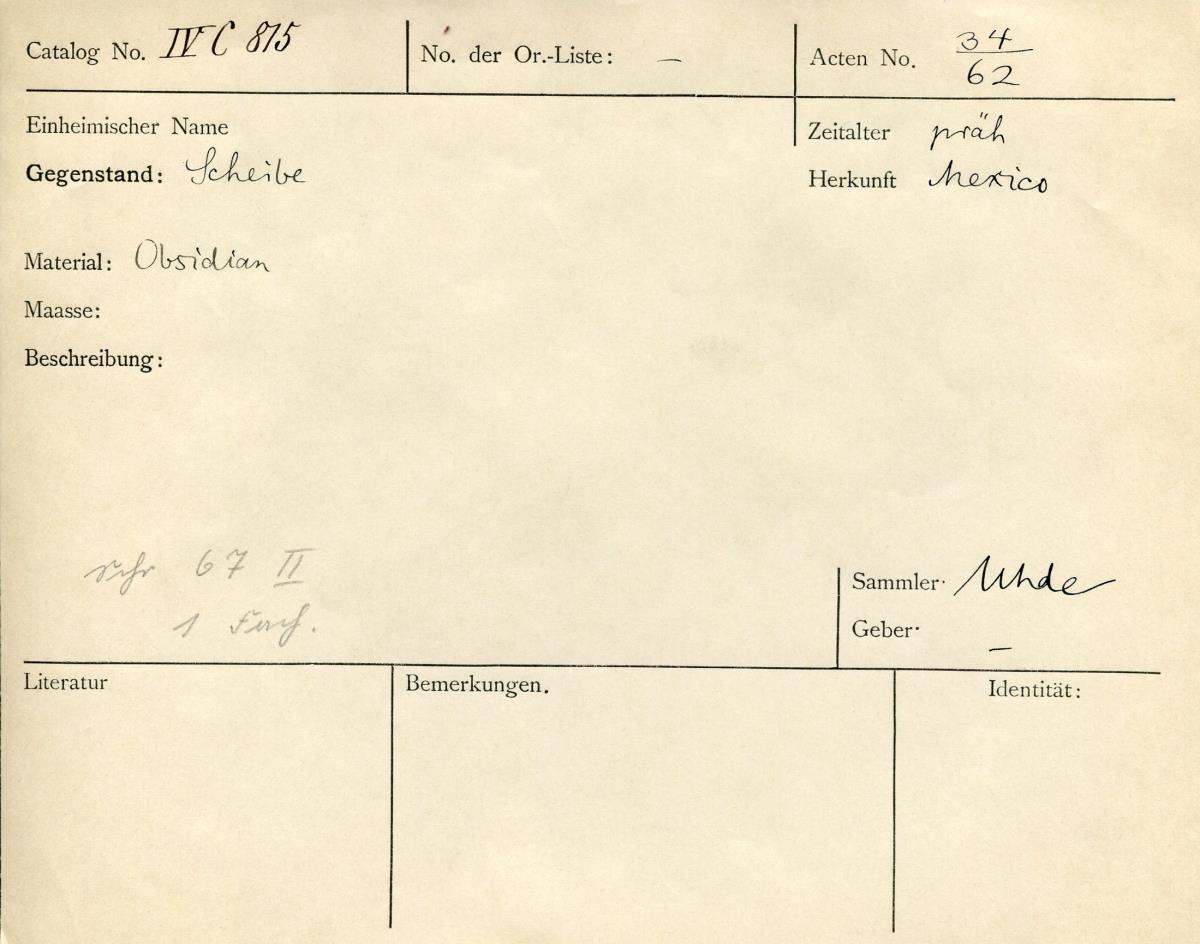 Catalog No. IV C 815
No. der Or.-Liste: —
Acten No. 34/62
Einheimischer Name
Zeitalter präh
Gegenstand: Scheibe
Herkunft Mexico
Material: Obsidian
Maasse:
Beschreibung:
Schr 67 II
1 Fach.
Sammler· Uhde
Geber· —
Literatur
Bemerkungen.
Identität: